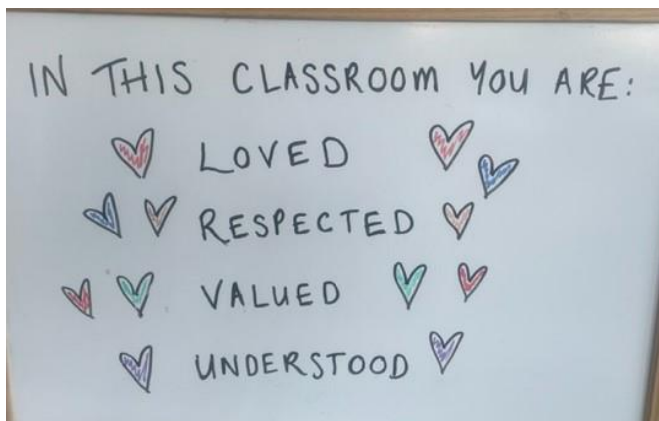 IN THIS CLASSROOM YOU ARE:
LOVED
RESPECTED
VALUED
UNDERSTOOD